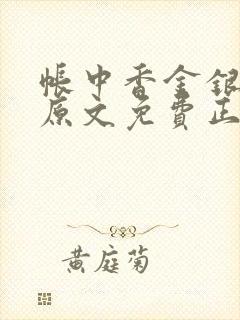 帳中香金銀
原文免費正
黃庭菊